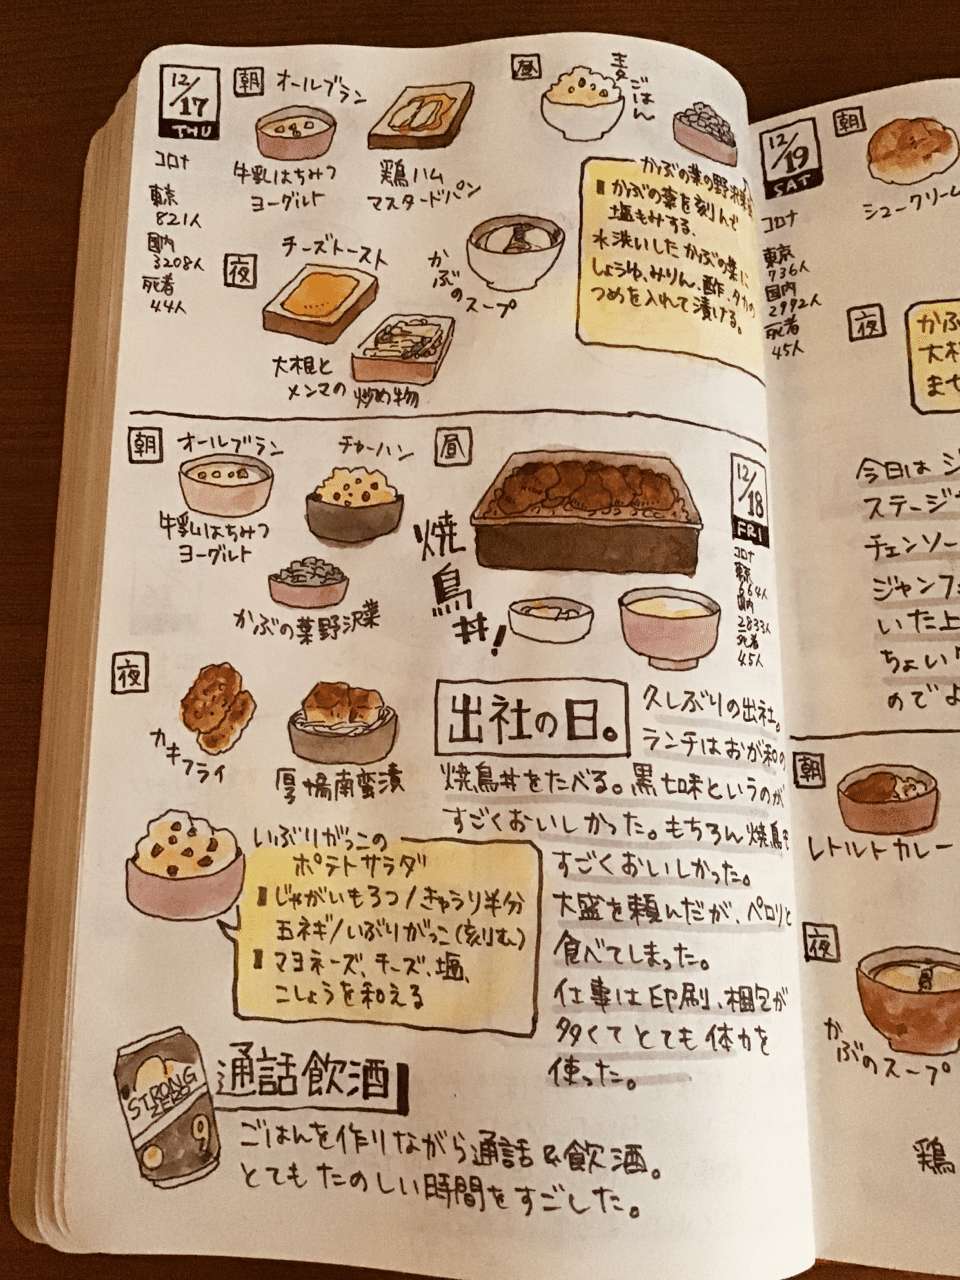 12/17
THU
コロナ
東京
821人
国内
3208人
死者
44人
朝
オールブラン
牛乳はちみつ
ヨーグルト
鶏ハム
マスタードパン
昼
麦ごはん
かぶの葉の野沢菜
かぶの葉を刻んで
塩もみする。
水洗いしたかぶの葉に
しょうゆ、みりん、酢、タカの
つめを入れて漬ける。
かぶのスープ
夜
チーズトースト
大根と
メンマの炒め物
12/18
FRI
コロナ
東京
664人
国内
2833人
死者
45人
朝
オールブラン
牛乳はちみつ
ヨーグルト
チャーハン
かぶの葉野沢菜
昼
焼鳥丼!
夜
カキフライ
厚揚南蛮漬
いぶりがっこの
ポテトサラダ
じゃがいも3つ/きゅうり半分
玉ネギ/いぶりがっこ(刻む)
マヨネーズ、チーズ、塩、
こしょうを和える
出社の日。
久しぶりの出社。
ランチはおが和の
焼鳥丼をたべる。黒七味というのが
すごくおいしかった。もちろん焼鳥も
すごくおいしかった。
大盛を頼んだが、ペロリと
食べてしまった。
仕事は印刷、梱包が
多くてとても体力を
使った。
STRONG
ZERO
9
通話飲酒
ごはんを作りながら通話&飲酒。
とてもたのしい時間をすごした。
12/19
SAT
コロナ
東京
736人
国内
2992人
死者
45人
朝
シュークリーム
夜
かぶ
大根
ませ
今日はジ
ステージ
チェンソー
ジャンフ
いた上
ちょい
のでよ
朝
レトルトカレー
夜
かぶのスープ
鶏